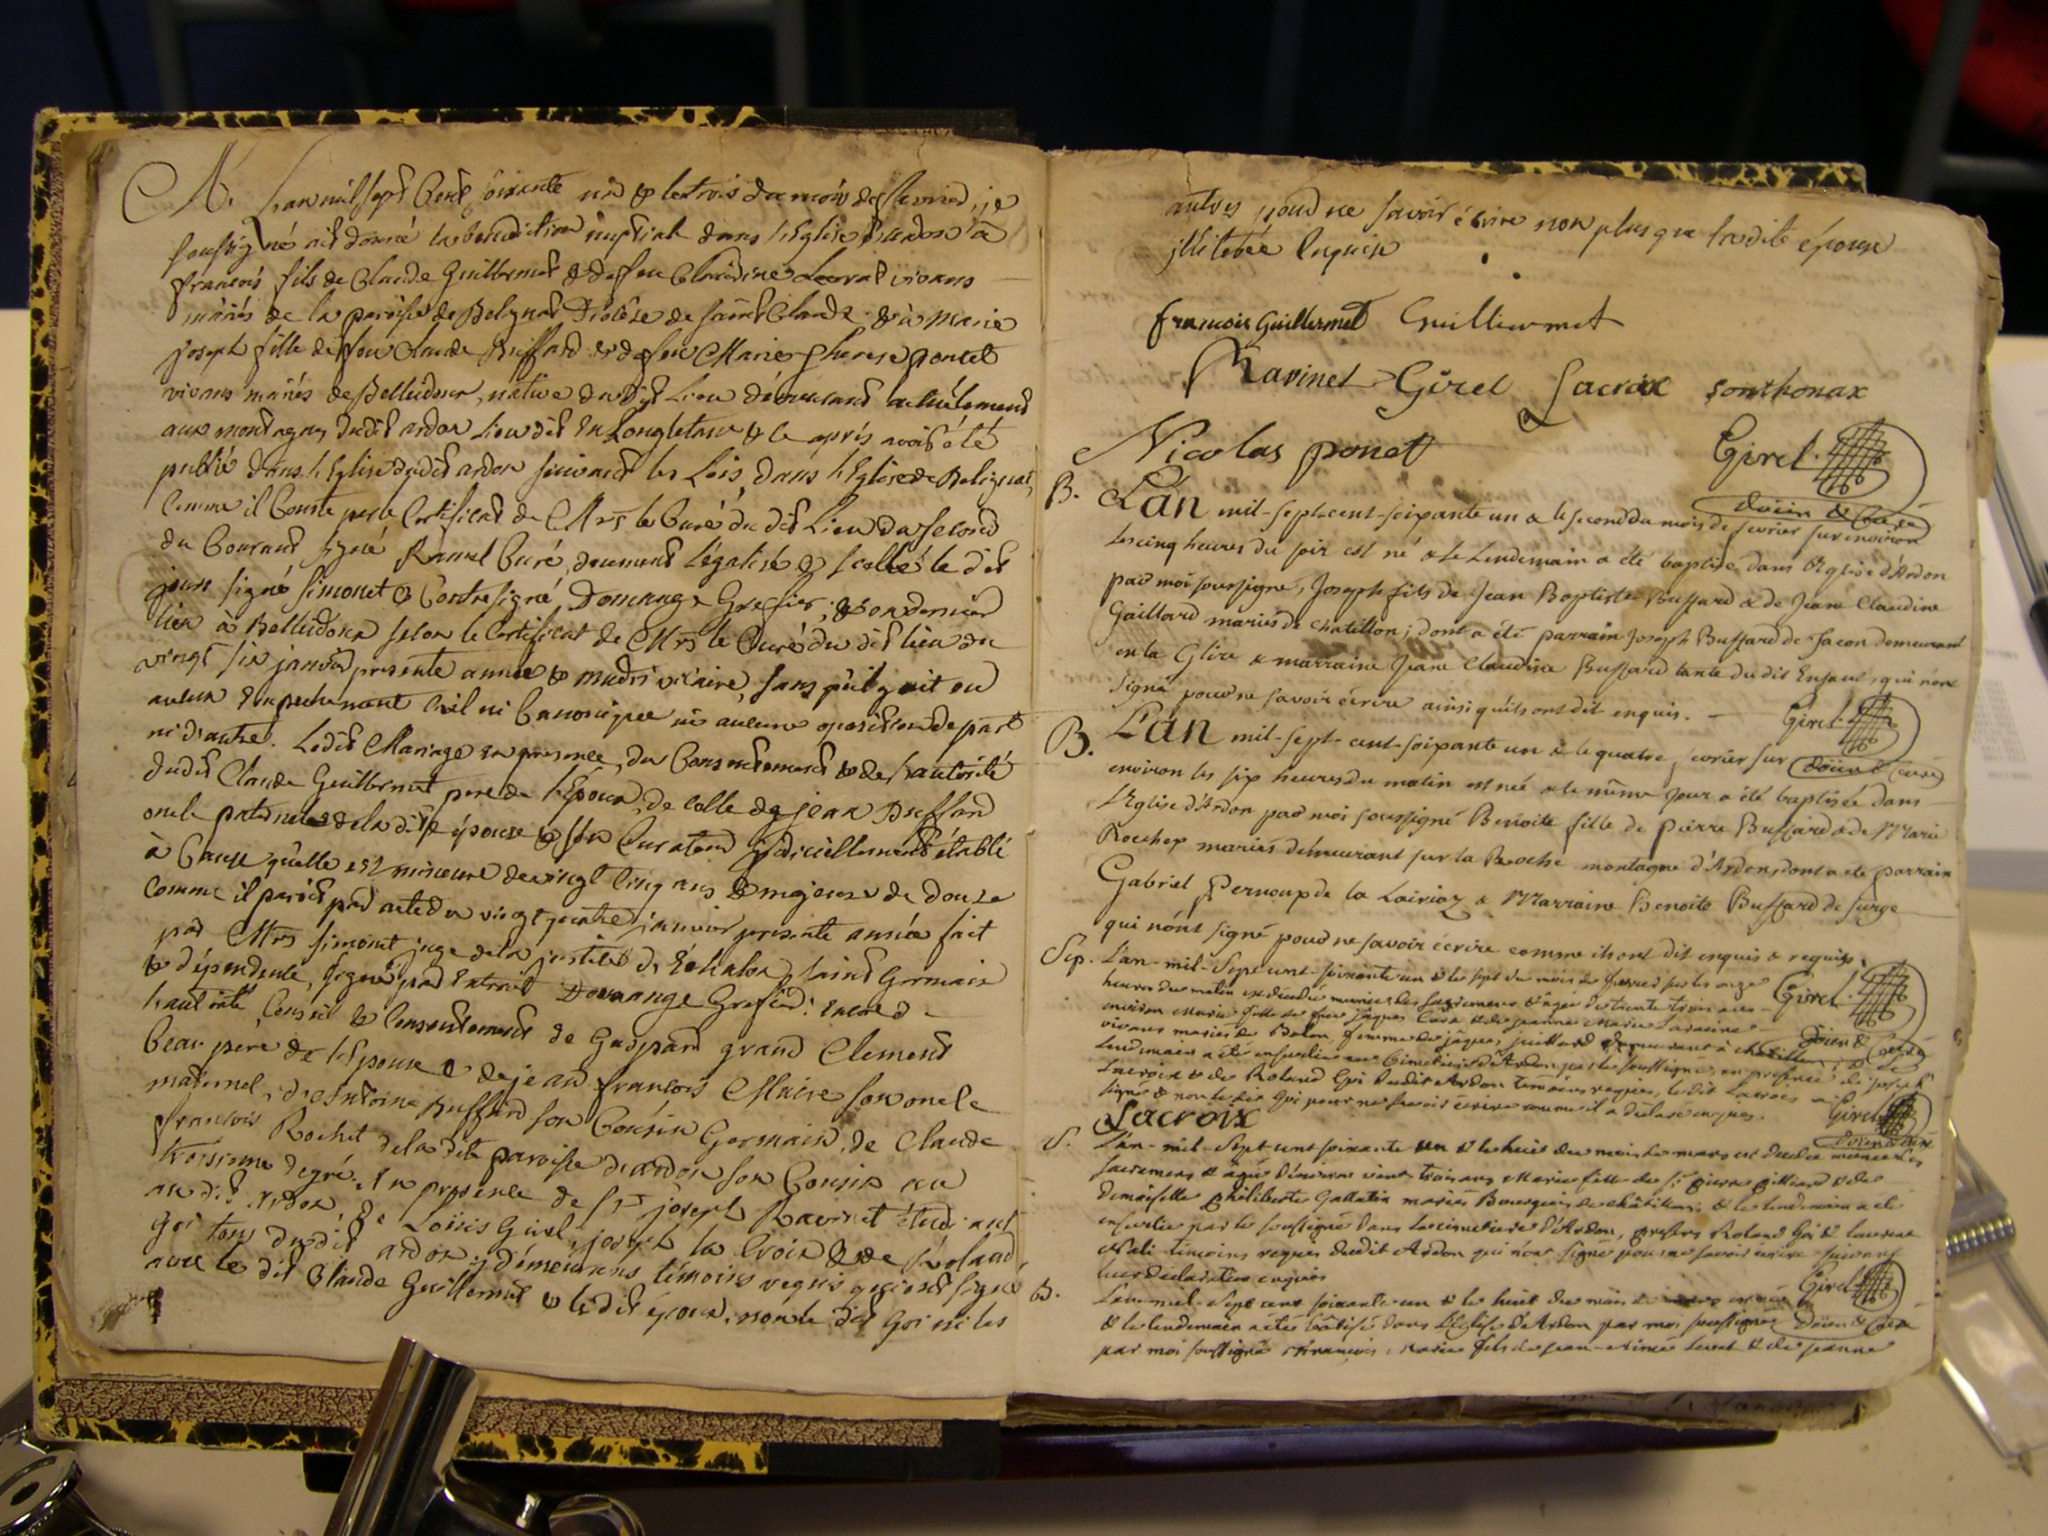 M. L'an mil sept Cent soixante un & le trois du mois de fevrier, je
soussigné ait donné la benediction nuptiale dans l'Eglise d'ardon à
francois fils de Claude Guillermet & de feu Claudine vivans
mariés de la paroisse de Belignat Diocèse de saint Claude & à Marie
joseph fille de feu Claude Buffard & de feue Marie Therese poncet
vivans mariés de Belleidoux, native dudit Lieu démeurant actuélement
aux montagnes dudit ardon Lieu dit En & ce aprés avoir été
publié dans l'Eglise dudit ardon suivant les Lois, dans l'Eglise de Belignat,
Comme il Conste par le Certificat de Mrs le Curé du dit Lieu du second
du Courant signé Ravinel Curé, deument légalisé & scellé le dit
jour signé simonet & Contresigné Domange Greffier, & son dernier
lieu à Belleidoux selon le Certificat de Mrs le Curé du dit lieu du
vingt six janvier presente année & vicaire, sans qu'il y ait eu
aucun Empechement Civil ni Canonique ni aucune oposition de part
ni d'autre. Ledit Mariage en presence, du Consentement & de l'autorité
dudit Claude Guillermet pere de l'Epoux, de celle de jean Buffard
oncle paternel de la dite épouse & son Curateur judiciellement établi
à Cause qu'elle est mineure de vingt Cinq ans & majeure de douze
Comme il paroit par acte du vingt quatre janvier presente année fait
par Mrs simonet juge de la justice de Echalon, saint Germain
& dépendente, signé par Extrait Domange Grefier: Encore de
l'autorité Conseil & Consentement de Gaspard grand Clement
beau pere de l'Epouse & de jean francois Maire son oncle
maternel, d'Antoine Buffard son Cousin Germain, de Claude
francois Rochet de la dite paroisse d'ardon son Cousin au
troisieme degré. En presence de Sr joseph Ravinet étudiant
au dit Ardon, de Loüis Girel, joseph la Croix & de Roland
Goi tous dudit ardon y démeurans témoins requis qui ont signé
avec le dit Claude Guillermet & le dit époux, non le dit Goi ni les
autres pour ne savoir écrire non plus que la dite épouse
illiterée Enquise
francois Guillermet Guilliermet
Ravinet Girel Lacroix sonthonax
Nicolas ponet Girel
doien & Curé
B. L'an mil-sept-cent-soixante un & le second du mois de fevrier sur environ
les cinq heures du soir est né & le Lendemain a été baptisé dans l'Eglise d'Ardon
par moi soussigné, Joseph fils de Jean Baptiste Buffard & de Jeane Claudine
Gaillard mariés de Chatillon; dont a été parrain Joseph Buffard de Jacon demeurant
en la Glire & marraine Jeane Claudine Buffard tante du dit Enfant, qui n'ont
signé pour ne savoir écrire ainsi qu'ils ont dit enquis. Girel
doien & Curé
B. L'an mil-sept-cent-soixante un & le quatre fevrier sur
environ les six heures du matin est née & le même jour a été baptisée dans
l'Eglise d'Ardon par moi soussigné Benoite fille de Pierre Buffard & de Marie
Rochex mariés demeurant sur la Roche montagne d'Ardon, dont a été parrain
Gabriel Pernoup de la & Marraine Benoite Buffard de
qui n'ont signé pour ne savoir écrire comme ils ont dit enquis & requis.
Sep. L'an-mil-Sept-cent-soixante un & le sept du mois de fevrier sur les onze Girel
heures du matin est decedée munie des sacremens & agée de trente trois ans
environ Marie fille de feu Jaques & de Jeanne Marie
vivans mariés de femme de jaques demeurant à Chatillon; & le Doien & Curé
Lendemain a été ensevelie au Cimetiere d'Ardon par le soussigné, en presence de joseph
Lacroix & de Roland Goi dudit Ardon temoins requis, le dit Lacroix a
signé & non le dit Goi pour ne savoir écrire comme il a declaré enquis.
Lacroix Girel
Doien & Curé
S. L'an-mil-Sept-cent soixante un & le huit du mois de mars est decedée munie des
sacremens & agée d'environ vingt trois ans Marie fille de Sr pierre & de
demoiselle philiberte Gallatin mariés Bourgeois de châtillon, & le lendemain a été
ensevelie par le soussigné dans le cimetiere d'Ardon, presens Roland Goi & laurent
temoins requis dudit Ardon qui n'ont signé pour ne savoir écrire suivant
leur declaration enquis Girel
B. L'an-mil-Sept cent soixante-un & le huit du mois de mars est né
& le lendemain a été batisé dans l'Eglise d'Ardon par moi soussigné Doien & Curé
par moi soussigné francois marie fils de jean-aimé & de jeanne